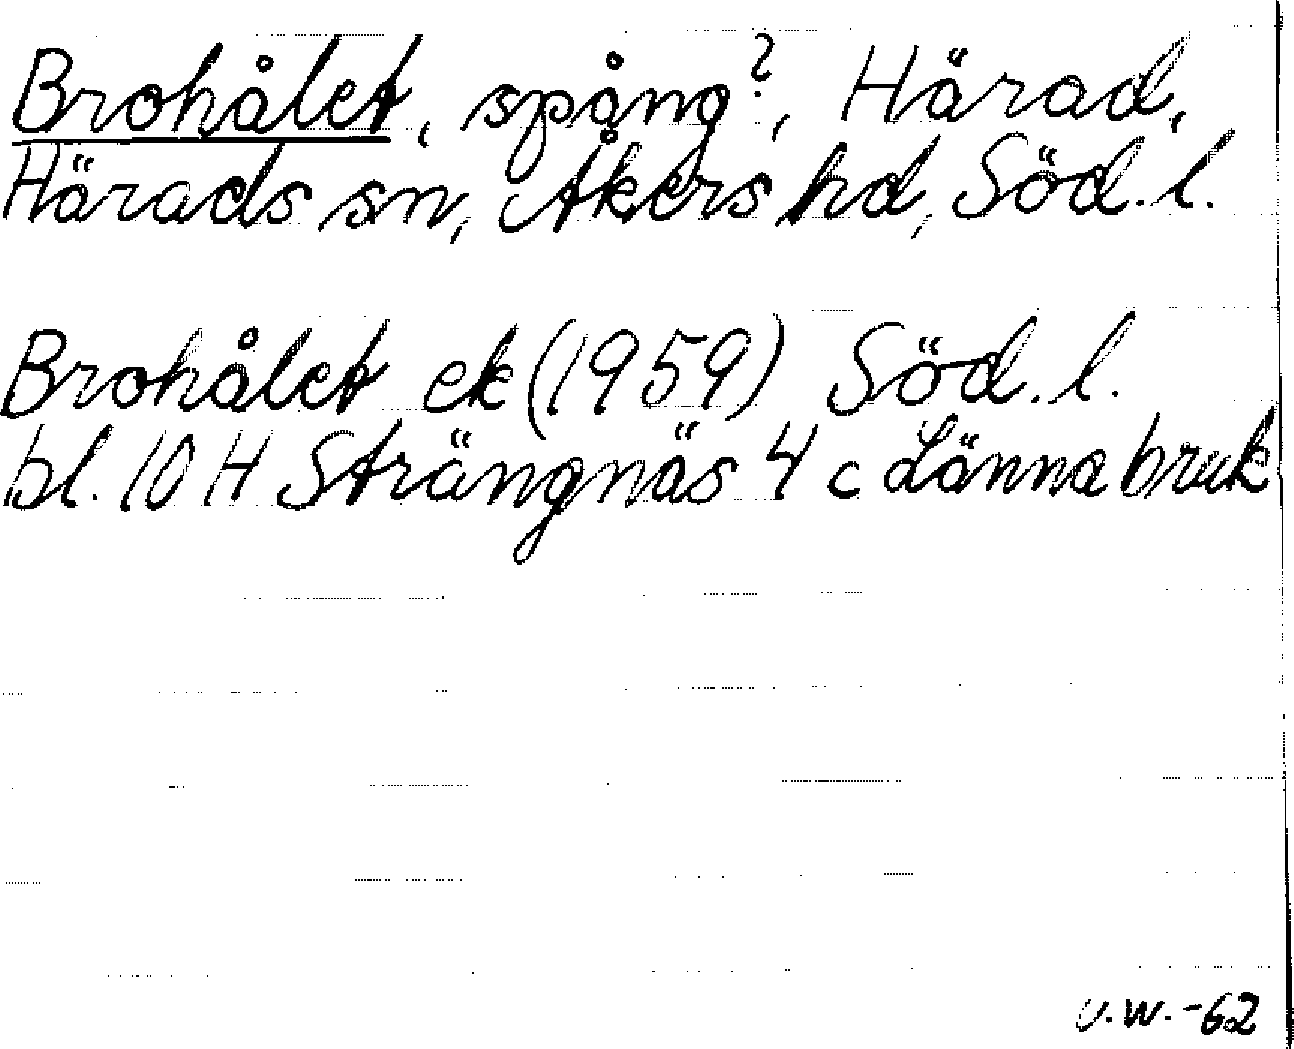 Brohålet, spång?, Härad,
Härads sn, Åkers hd, Söd. l.
Brohålet ek (1959) Söd. l.
bl. 10 H Strängnäs 4 c Länna bruk
U.W. -62